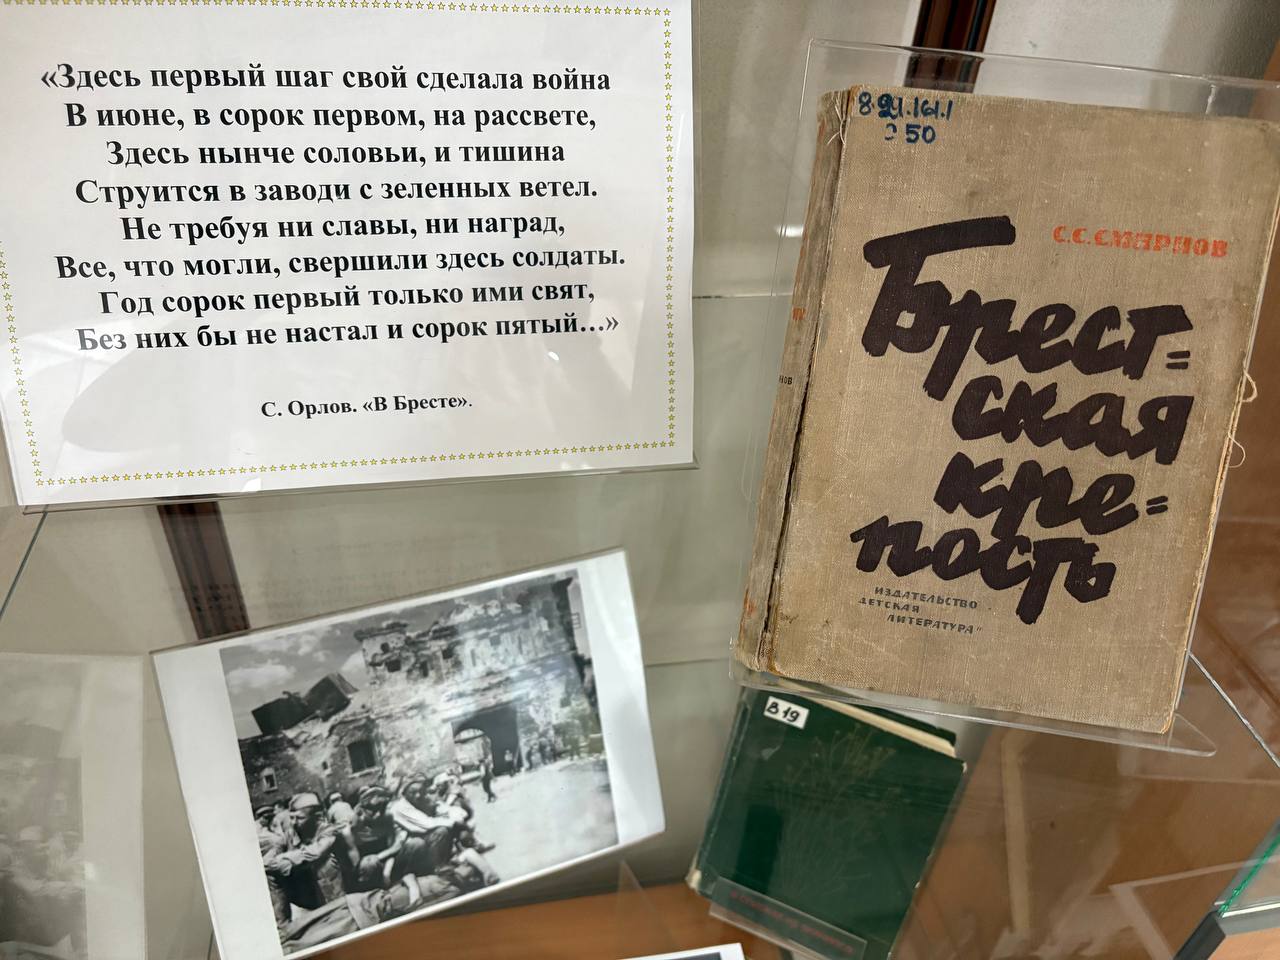 «Здесь первый шаг свой сделала война
В июне, в сорок первом, на рассвете,
Здесь нынче соловьи, и тишина
Струится в заводи с зеленных ветел.
Не требуя ни славы, ни наград,
Все, что могли, свершили здесь солдаты.
Год сорок первый только ими свят,
Без них бы не настал и сорок пятый…»
С. Орлов. «В Бресте».
С.С.СМИРНОВ
Брест=
ская
кре=
пость
ИЗДАТЕЛЬСТВО
ДЕТСКАЯ
ЛИТЕРАТУРА"
В 19